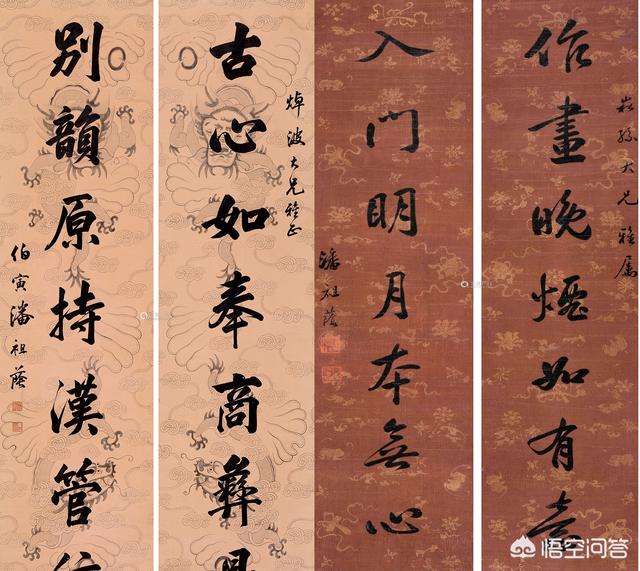 作畫晚煙如有意
大兄雅屬
入門明月本無心
潘祖蔭
古心如奉商彝
焯波大兄雅正
別韻原持漢管
伯寅潘祖蔭
悟空问答